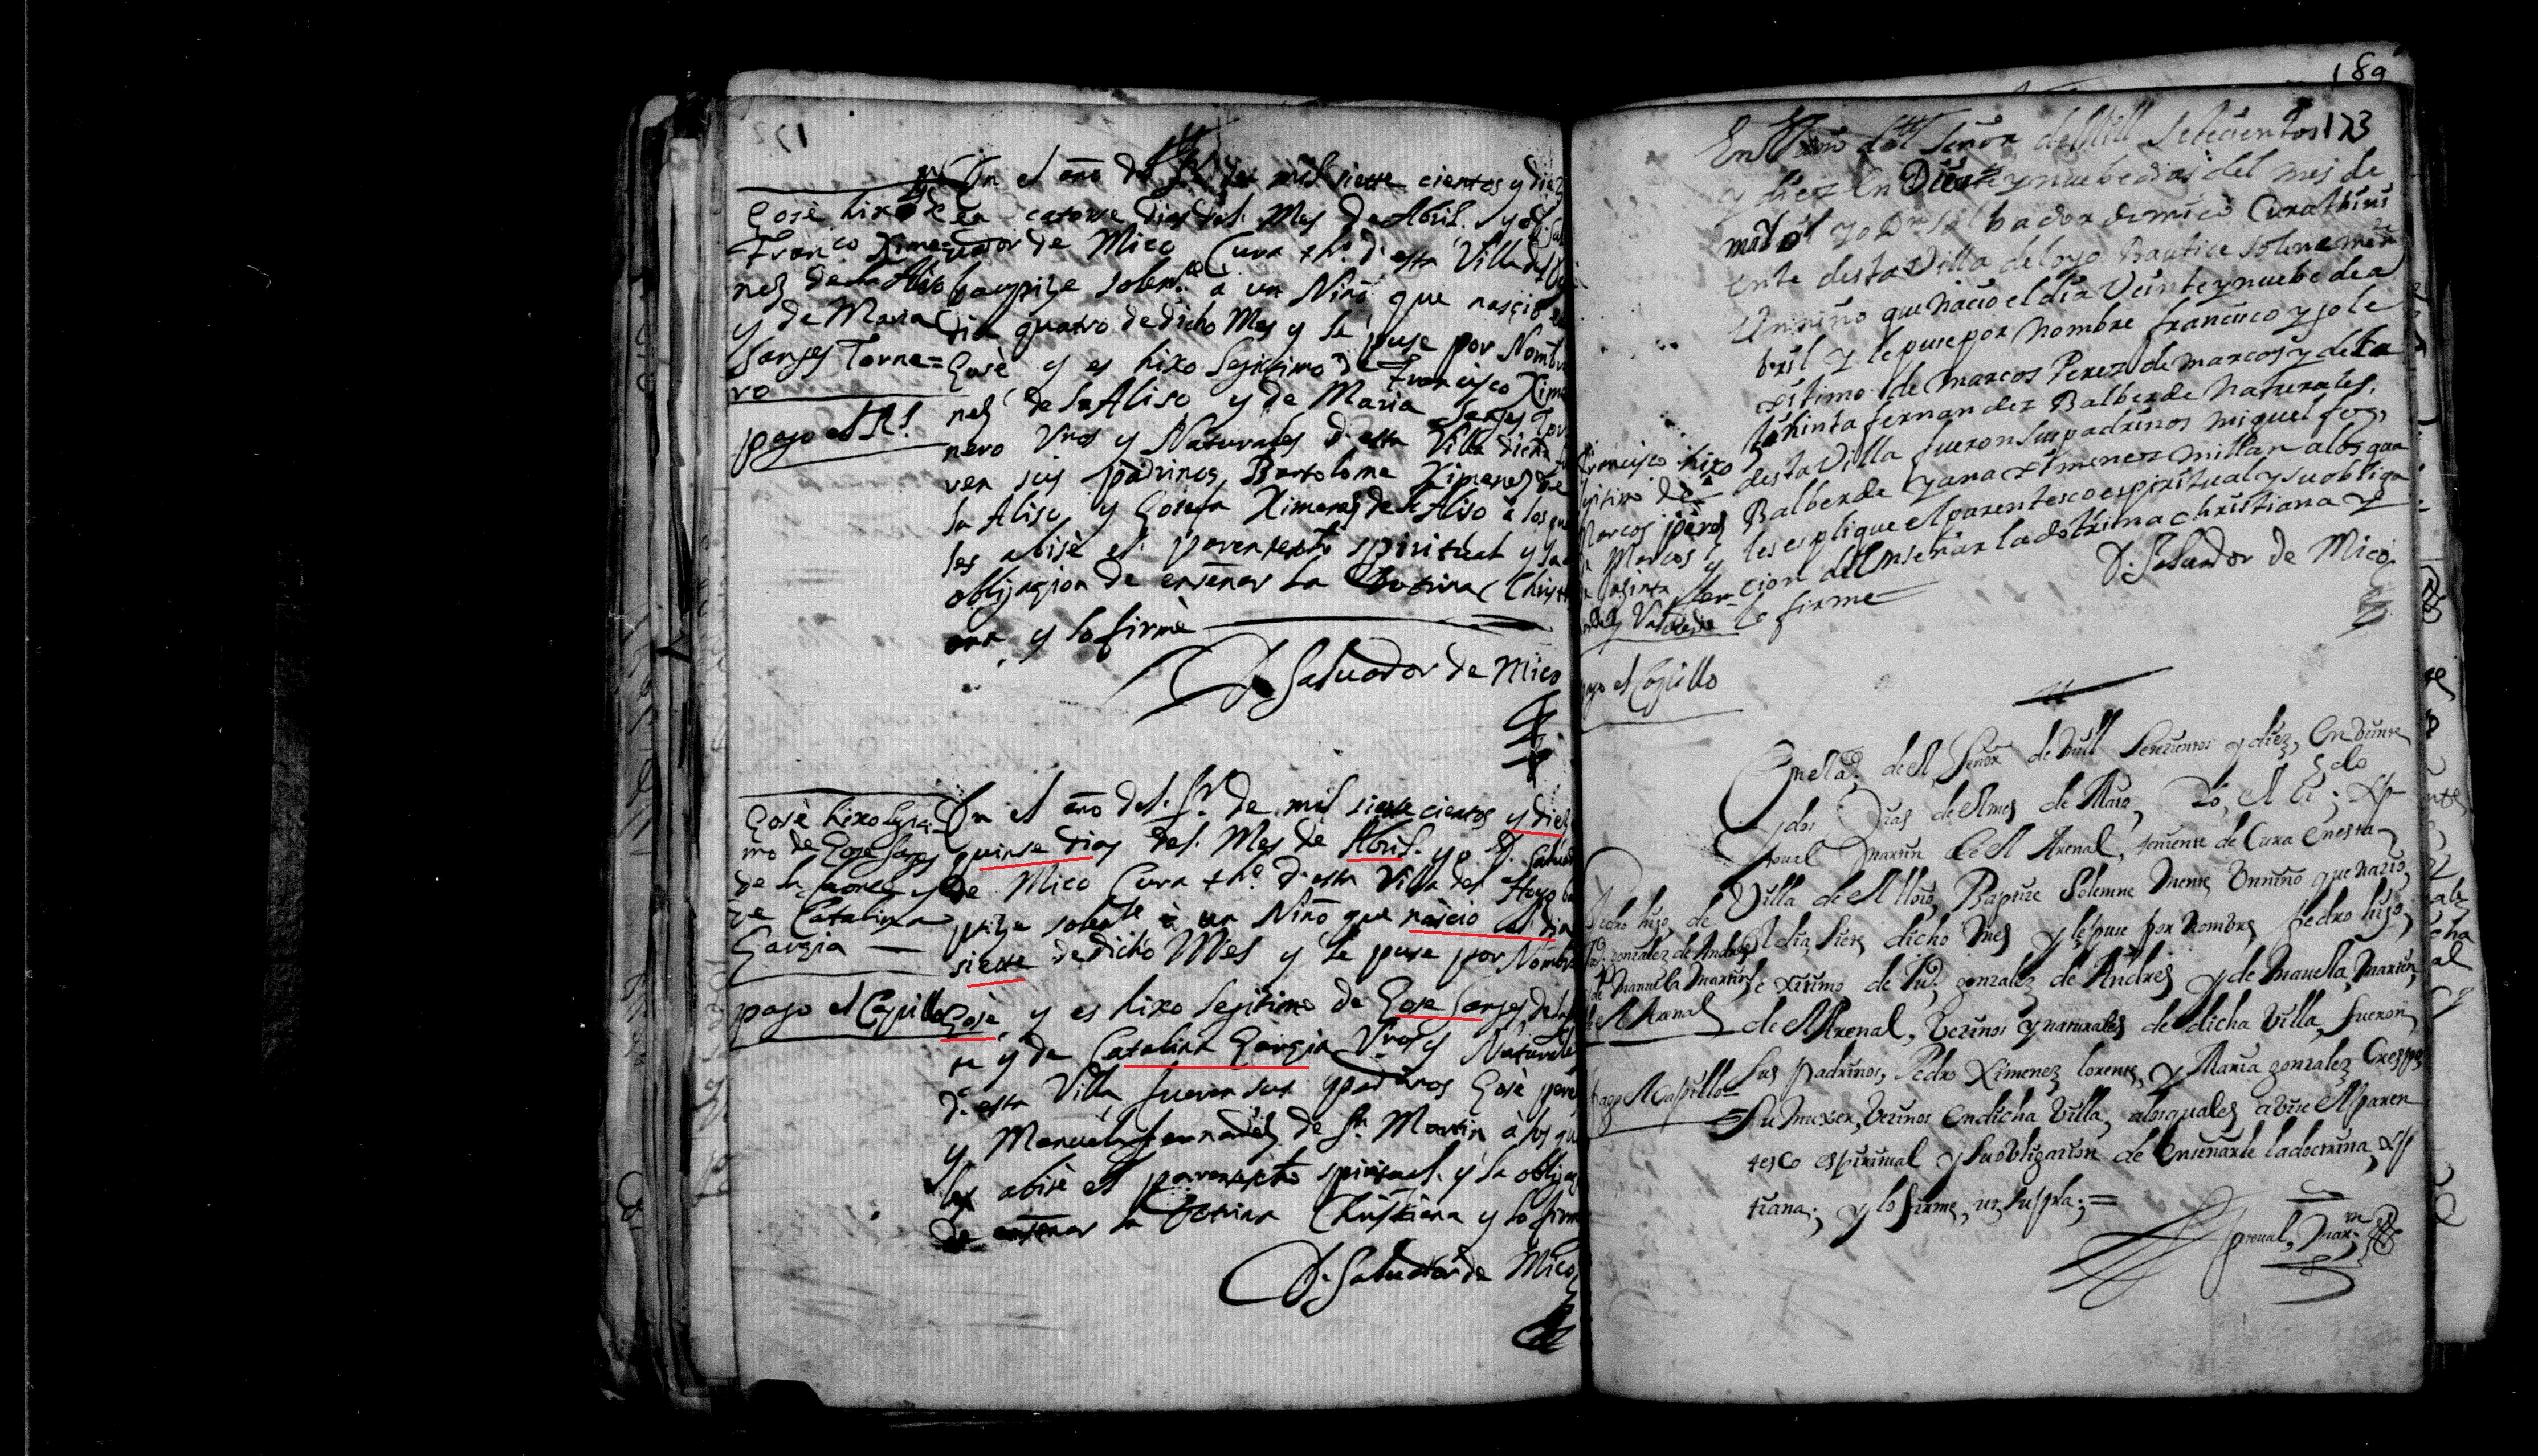 189
172
Gosè hixo de
Franco Xime=
nes de la Aliso
y de Maria
Sanses Torne=
ro
pago el Rl.
En el año del Sr. de mil siette cientos y diez
en catorse dias del. Mes de Abril. yo D. Sal
uador de Mico Cura tho. d'esta Villa del
baupize solemte. a un Niño que nasçio
dia quatro de dicho Mes y le puse por Nombre
Gosè y es hixo legitimo de Francisco Xime
nes de la Aliso y de Maria Sanses Tor
nero Vnos y Naturales d'esta Villa dicha fu
ren sus padrinos Bartolome Ximenes de
la Aliso y Gosefa Ximenes de la Aliso à los qua
les abisè el parentesto spiritual y la
obligaçion de enseñar la Dotrina Christi
ana y lo firmè
D. Saluador de Mico
Gosè hixo legiti=
mo de Gose Sanses
de la y
de Catalina
Garzia
pago el Capillo
En el año del. Sr. de mil siette cientos y diez
quinse dias del. Mes de Abril. yo D. Saluador
de Mico Cura tho. d'esta Villa del Hoyo bau
pize solemte à un Niño que nascio el dia
siette de dicho Mes y le puse por Nombre
Gosè, y es hixo legitimo de Gose Sanses de la
te y de Catalina Garzia Vnos y Naturales
d'esta Villa fueron sus ypadrinos Gosè pere
y Manuela fernandes de Sn. Martin à los qua
les abisè el parentesto spiritual. y la obligaz
de enseñar la Dotrina Christiana y lo firme
D. Saluador de Mico
173
En el Año del Señor de Mill Setecientos
y diez en Diez y nuebe dias del mes de
mallo yo Dn Salbador de mico Cura thini
ente desta Villa del oyo Bautice Solenemen
Un niño que nacio el dia Veinte y nuebe de a
bril y le puse por nombre francisco y jo le
xitimo de marcos Perez de marcos y de Ja
chinta fernandez Balberde naturales
desta Villa fueron sus padrinos miguel frz,
Balberde y ana ximenez millan a los qua
les esplique el parentesco espiritual y su obliga
cion del enseñar la dotrina christiana y
lo firme
D. Saluador de Mico
francisco hixo
legitimo de
Marcos pères
de Marcos y
de Jazinta fer=
nandes Valuerde
pago el Capillo
En el año. de el Señor de mill Setezientos y diez, en Veinte
y dos Dias de el mes de Maio, Yo, el Lizdo
Martin de el Arenal, teniente de Cura en esta
Villa de el Hoio, Baptize Solemne Mente Un niño que nazio,
el dia, siete dicho mes y le puse por Nombre, Pedro hijo,
lexitimo de Ju.o gonzalez de Andres y de Manuela, Martin,
de el Arenal, Vezinos y naturales de dicha Villa, fueron
Sus Padrinos, Pedro Ximenez lorente, y Maria gonzalez Crespo
Su muxer, Vezinos en dicha Villa, a los quales avise el paren
tesco espiritual y su obligazion de enseñarle la doctrina, xp
tiana; y lo firme, ut supra;=
Pedro hijo, de
Jo. gonzalez de Andres
y de Manuela Martin
de el Arenal
pago el Capillo